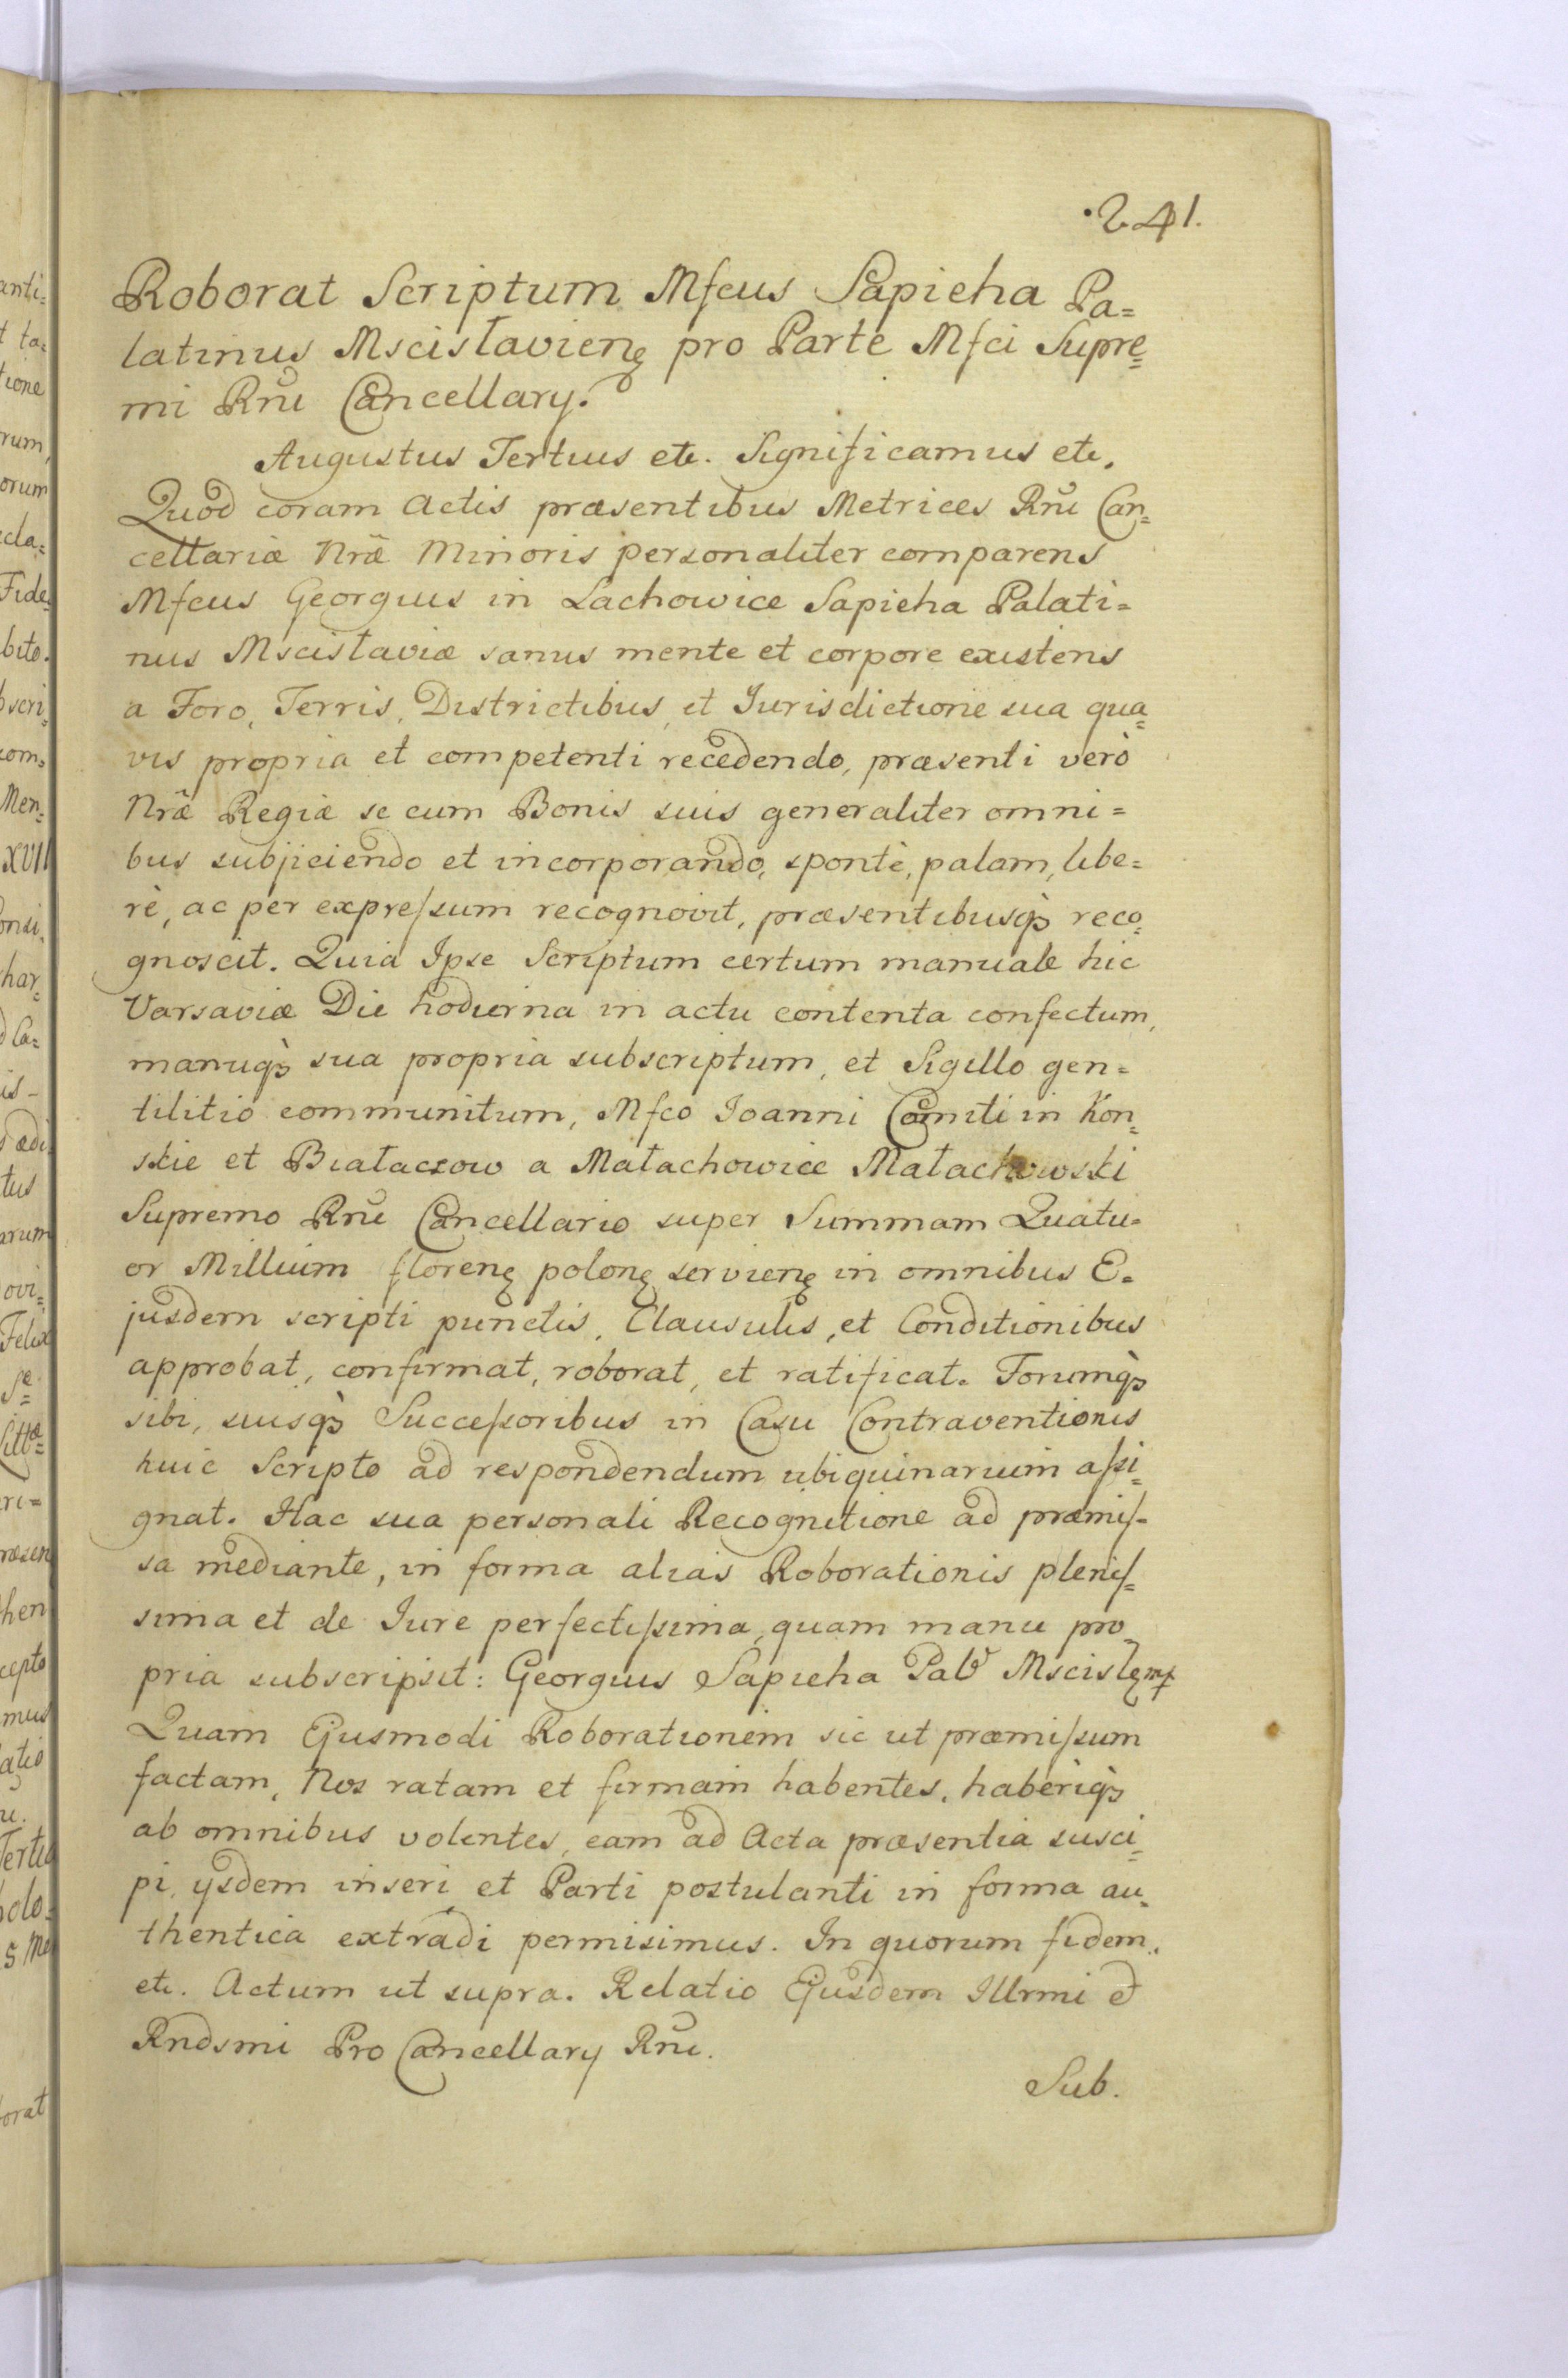 241.
Roborat Scriptum Mfcus Sapieha Pa=
latinus Mscislavienę pro Parte Mfci Supre=
mi Rnũ Cancellary.
Augustus Tertius etc. Significamus etc.
Quod coram Actis præsentibus Metrices Rnũ Can=
cellariæ Nrã Minoris personaliter comparens
Mfcus Georgius in Lachowice Sapieha Palati=
nus Mscislaviæ sanus mente et corpore existens
a Foro, Terris, Districtibus, et Jurisdictione sua qua=
vis propria et competenti recedendo, præsenti verò
Nræ Regiæ se cum Bonis suis generaliter omni=
bus subjiciendo et incorporando, spontè, palam, libe=
rè, ac per expreſsum recognovit, præsentibusq̀ reco=
gnoscit. Quia Ipse Scriptum certum manuale hic
Varsaviæ Die hodierna in actu contenta confectum,
manuq̀ sua propria subscriptum, et Sigillo gen=
tilitio communitum, Mfco Joanni Comiti in Kon=
skie et Białaczow a Małachowice Małachowski
Supremo Rnũ Cancellario super Summam Quatu=
or Millium florenę polonę servienę in omnibus E=
jusdem scripti punctis, Clausulis, et Conditionibus
approbat, confirmat, roborat, et ratificat. Forumq̀
sibi, suisq̀ Succeſsoribus in Casu Contraventionis
huic Scripto ad respondendum ubiquinarium aſsi=
gnat. Hac sua personali Recognitione ad præmiſ=
sa mediante, in forma alias Roborationis pleniſ=
sima et de Jure perfectiſsima, quam manu pro=
pria subscripsit: Georgius Sapieha Palꝰ Mscislę mp
Quam Ejusmodi Roborationem sic ut præmiſsum
factam, Nos ratam et firmam habentes, haberiq̀
ab omnibus volentes, eam ad Acta præsentia susci=
pi, ysdem inseri et Parti postulanti in forma au=
thentica extradi permisimus. In quorum fidem.
etc. Actum ut supra. Relatio Ejusdem Illrmi et
Rndsmi Pro Cancellary Rnũ.
Sub.